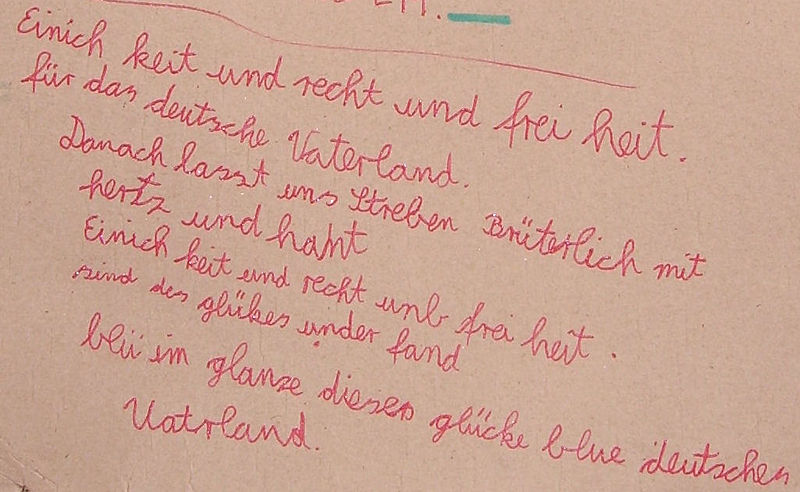 Einich keit und recht und frei heit.
für das deutsche Vaterland.
Danach lasst uns Streben Brüterlich mit
hertz und hant
Einich keit und recht unb frei heit.
sind des glükes under fand
blü im glanze dieses glücke blue deutsches
Vatrland.